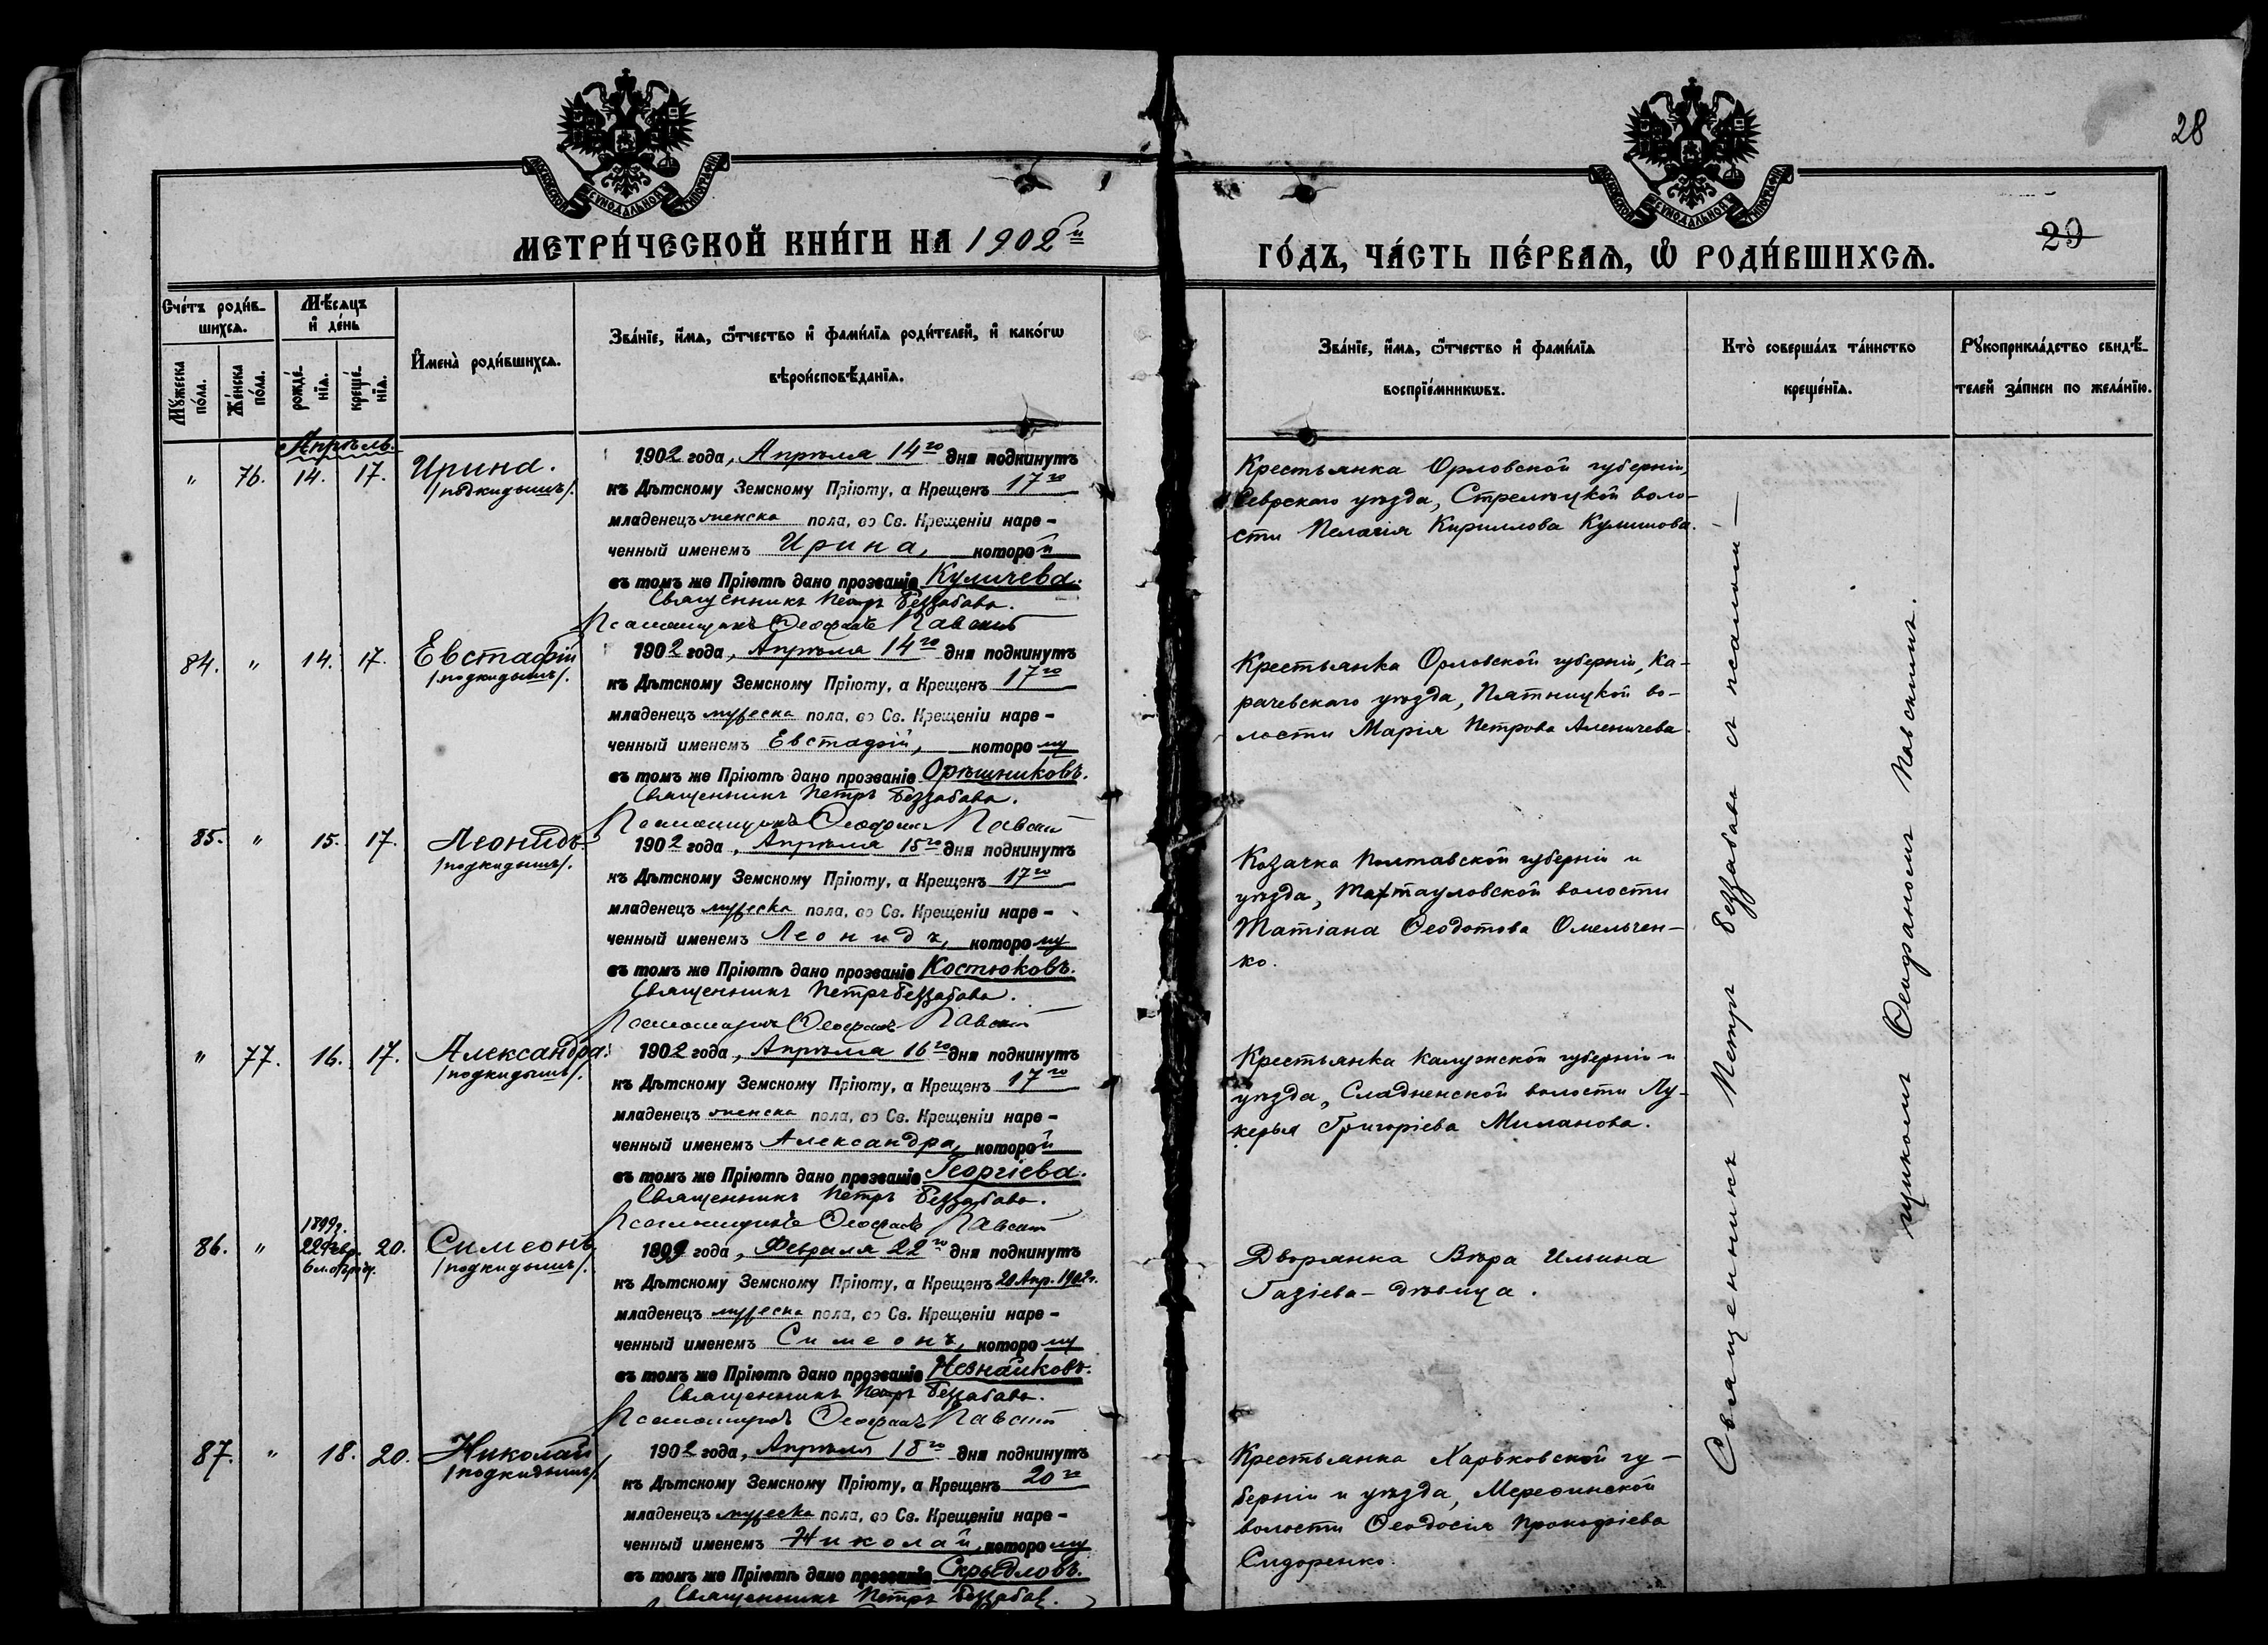 28
29
МЕТРИ́ЧЕСКОЙ КНИ́ГИ НА 1902й
ГО́ДЪ, ЧА́СТЬ ПЕ́РВАѦ, Ѡ҆ РОДИ́ВШИХСѦ.
Сче́тъ роди́в-
шихсѧ.
Мꙋ́жеска
по́ла.
Же́нска
по́ла.
Мѣ́сѧцъ
и҆ де́нь
рожде́-
нїѧ.
креще́-
нїѧ.
И҆мена̀ роди́вшихсѧ.
Зва́нїе, и҆́мѧ, ѻ҆́тчество и҆ фами́лїѧ роди́телей, и҆ како́гѡ
вѣроисповѣ́данїѧ.
Зва́нїе, и҆́мѧ, ѻ҆́тчество и҆ фами́лїѧ
воспрїе́мникѡвъ.
Кто̀ соверша́лъ та́инство
креще́нїѧ.
Рꙋкоприкла́дство свидѣ́-
телей за́писи по жела́нїю.
Апрѣль.
" 76. 14. 17. Ирина.
/подкидышъ/.
1902 года, Апрѣля 14го дня подкинутъ
къ Дѣтскому Земскому Пріюту, а Крещенъ 17го
младенецъ женска пола, во Св. Крещеніи наре-
ченный именемъ Ирина, которой
въ томъ же Пріютѣ дано прозваніе Куличева.
Священникъ Петръ Беззабава.
Псаломщикъ Ѳеофанъ Павскій
Крестьянка Орловской губерніи,
Севскаго уѣзда, Стрелецкой воло-
сти Пелагія Кириллова Куликова.
84. " 14. 17. Евстафій
/подкидышъ/.
1902 года, Апрѣля 14го дня подкинутъ
къ Дѣтскому Земскому Пріюту, а Крещенъ 17го
младенецъ мужеска пола, во Св. Крещеніи наре-
ченный именемъ Евстафій, которому
въ томъ же Пріютѣ дано прозваніе Орѣшниковъ.
Священникъ Петръ Беззабава.
Псаломщикъ Ѳеофанъ Павскій
Крестьянка Орловской губерніи, Ка-
рачевскаго уѣзда, Пятницкой во-
лости Марія Петрова Аленичева
85. " 15. 17. Леонидъ
/подкидышъ/.
1902 года, Апрѣля 15го дня подкинутъ
къ Дѣтскому Земскому Пріюту, а Крещенъ 17го
младенецъ мужеска пола, во Св. Крещеніи наре-
ченный именемъ Леонидъ, которому
въ томъ же Пріютѣ дано прозваніе Костюковъ.
Священникъ Петръ Беззабава.
Псаломщикъ Ѳеофанъ Павскій
Козачка Полтавской губерніи и
уѣзда, Тахтауловской волости
Татіана Ѳеодотова Омельчен-
ко.
" 77. 16. 17. Александра.
/подкидышъ/.
1902 года, Апрѣля 16го дня подкинутъ
къ Дѣтскому Земскому Пріюту, а Крещенъ 17го
младенецъ женска пола, во Св. Крещеніи наре-
ченный именемъ Александра, которой
въ томъ же Пріютѣ дано прозваніе Георгіева.
Священникъ Петръ Беззабава.
Псаломщикъ Ѳеофанъ Павскій
Крестьянка Калужской губерніи и
уѣзда, Сладненской волости Лу-
керья Григоріева Миланова.
1899г.
86. " 22 Февр. 20. Симеонъ
/подкидышъ/.
1899 года, Февраля 22го дня подкинутъ
къ Дѣтскому Земскому Пріюту, а Крещенъ 20 Апр. 1902г.
младенецъ мужеска пола, во Св. Крещеніи наре-
ченный именемъ Симеонъ, которому
въ томъ же Пріютѣ дано прозваніе Незнайковъ.
Священникъ Петръ Беззабава.
Псаломщикъ Ѳеофанъ Павскій
Дворянка Вѣра Ильина
Газіева - дѣвица.
87. " 18. 20. Николай
/подкидышъ/
1902 года, Апрѣля 18го дня подкинутъ
къ Дѣтскому Земскому Пріюту, а Крещенъ 20го
младенецъ мужеска пола, во Св. Крещеніи наре-
ченный именемъ Николай, которому
въ томъ же Пріютѣ дано прозваніе Скрыдловъ.
Священникъ Петръ Беззабава.
Крестьянка Харьковской гу-
берніи и уѣзда, Мерефинской
волости Ѳеодосія Прокофіева
Сидоренко.
Священникъ Петръ Беззабава съ псалом-
щикомъ Ѳеофаномъ Павскимъ.